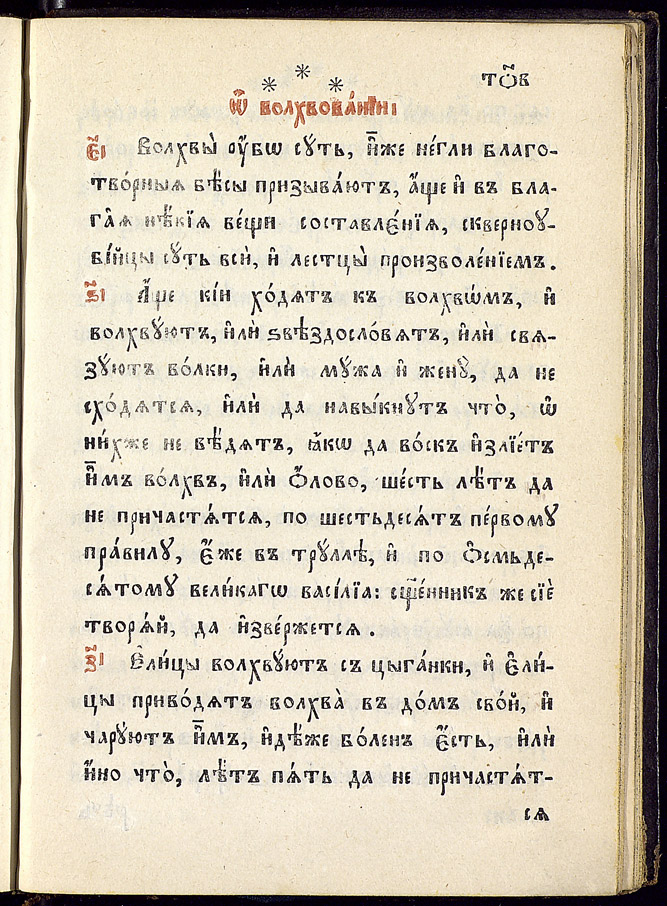 тѿв
* * *
Ѡ҆ волхвова́нїи
є҃і Волхвы̀ оу҆́бѡ сꙋ́ть, и҆̀же не́гли благо-
тво́рныѧ бѣ́сы призыва́ютъ, а҆́ще и҆ въ бла-
га̑ѧ нѣ̑кїѧ ве́щи составле́нїѧ, скверноу-
бі́йцы сꙋ́ть всѝ, и҆ лестцы̀ произволе́нїемъ.
ѕ҃і А҆́ще кі́и хо́дѧтъ къ волхвѡ́мъ, и҆
волхвꙋ́ютъ, и҆лѝ ѕвѣздосло́вѧтъ, и҆лѝ свѧ-
зꙋ́ютъ во́лки, и҆лѝ мꙋ́жа и҆ женꙋ̀, да не
схо́дѧтсѧ, и҆лѝ да навы́кнꙋтъ что̀, ѡ҆
ни́хже не вѣ́дѧтъ, ꙗ҆́кѡ да во́скъ и҆злїе́тъ
и҆̀мъ во́лхвъ, и҆лѝ ѻ҆́лово, ше́сть лѣ́тъ да
не причастѧ́тсѧ, по шестьдесѧ́тъ пе́рвомꙋ
пра́вилꙋ, є҆́же въ трꙋ́ллѣ, и҆ по ѻ҆смьде-
сѧ́томꙋ вели́кагѡ васі́лїа: сщ҃е́нникъ же сїѐ
творѧ́й, да и҆зве́ржетсѧ.
з҃і Є҆ли́цы волхвꙋ́ютъ съ цыга́нки, и҆ є҆ли́-
цы приво́дѧтъ волхва̀ въ до́мъ сво́й, и҆
чарꙋ́ютъ и҆̀мъ, и҆дѣ́же бо́ленъ є҆́сть, и҆лѝ
и҆́но что̀, лѣ́тъ пѧ́ть да не причастѧ́т-
сѧ